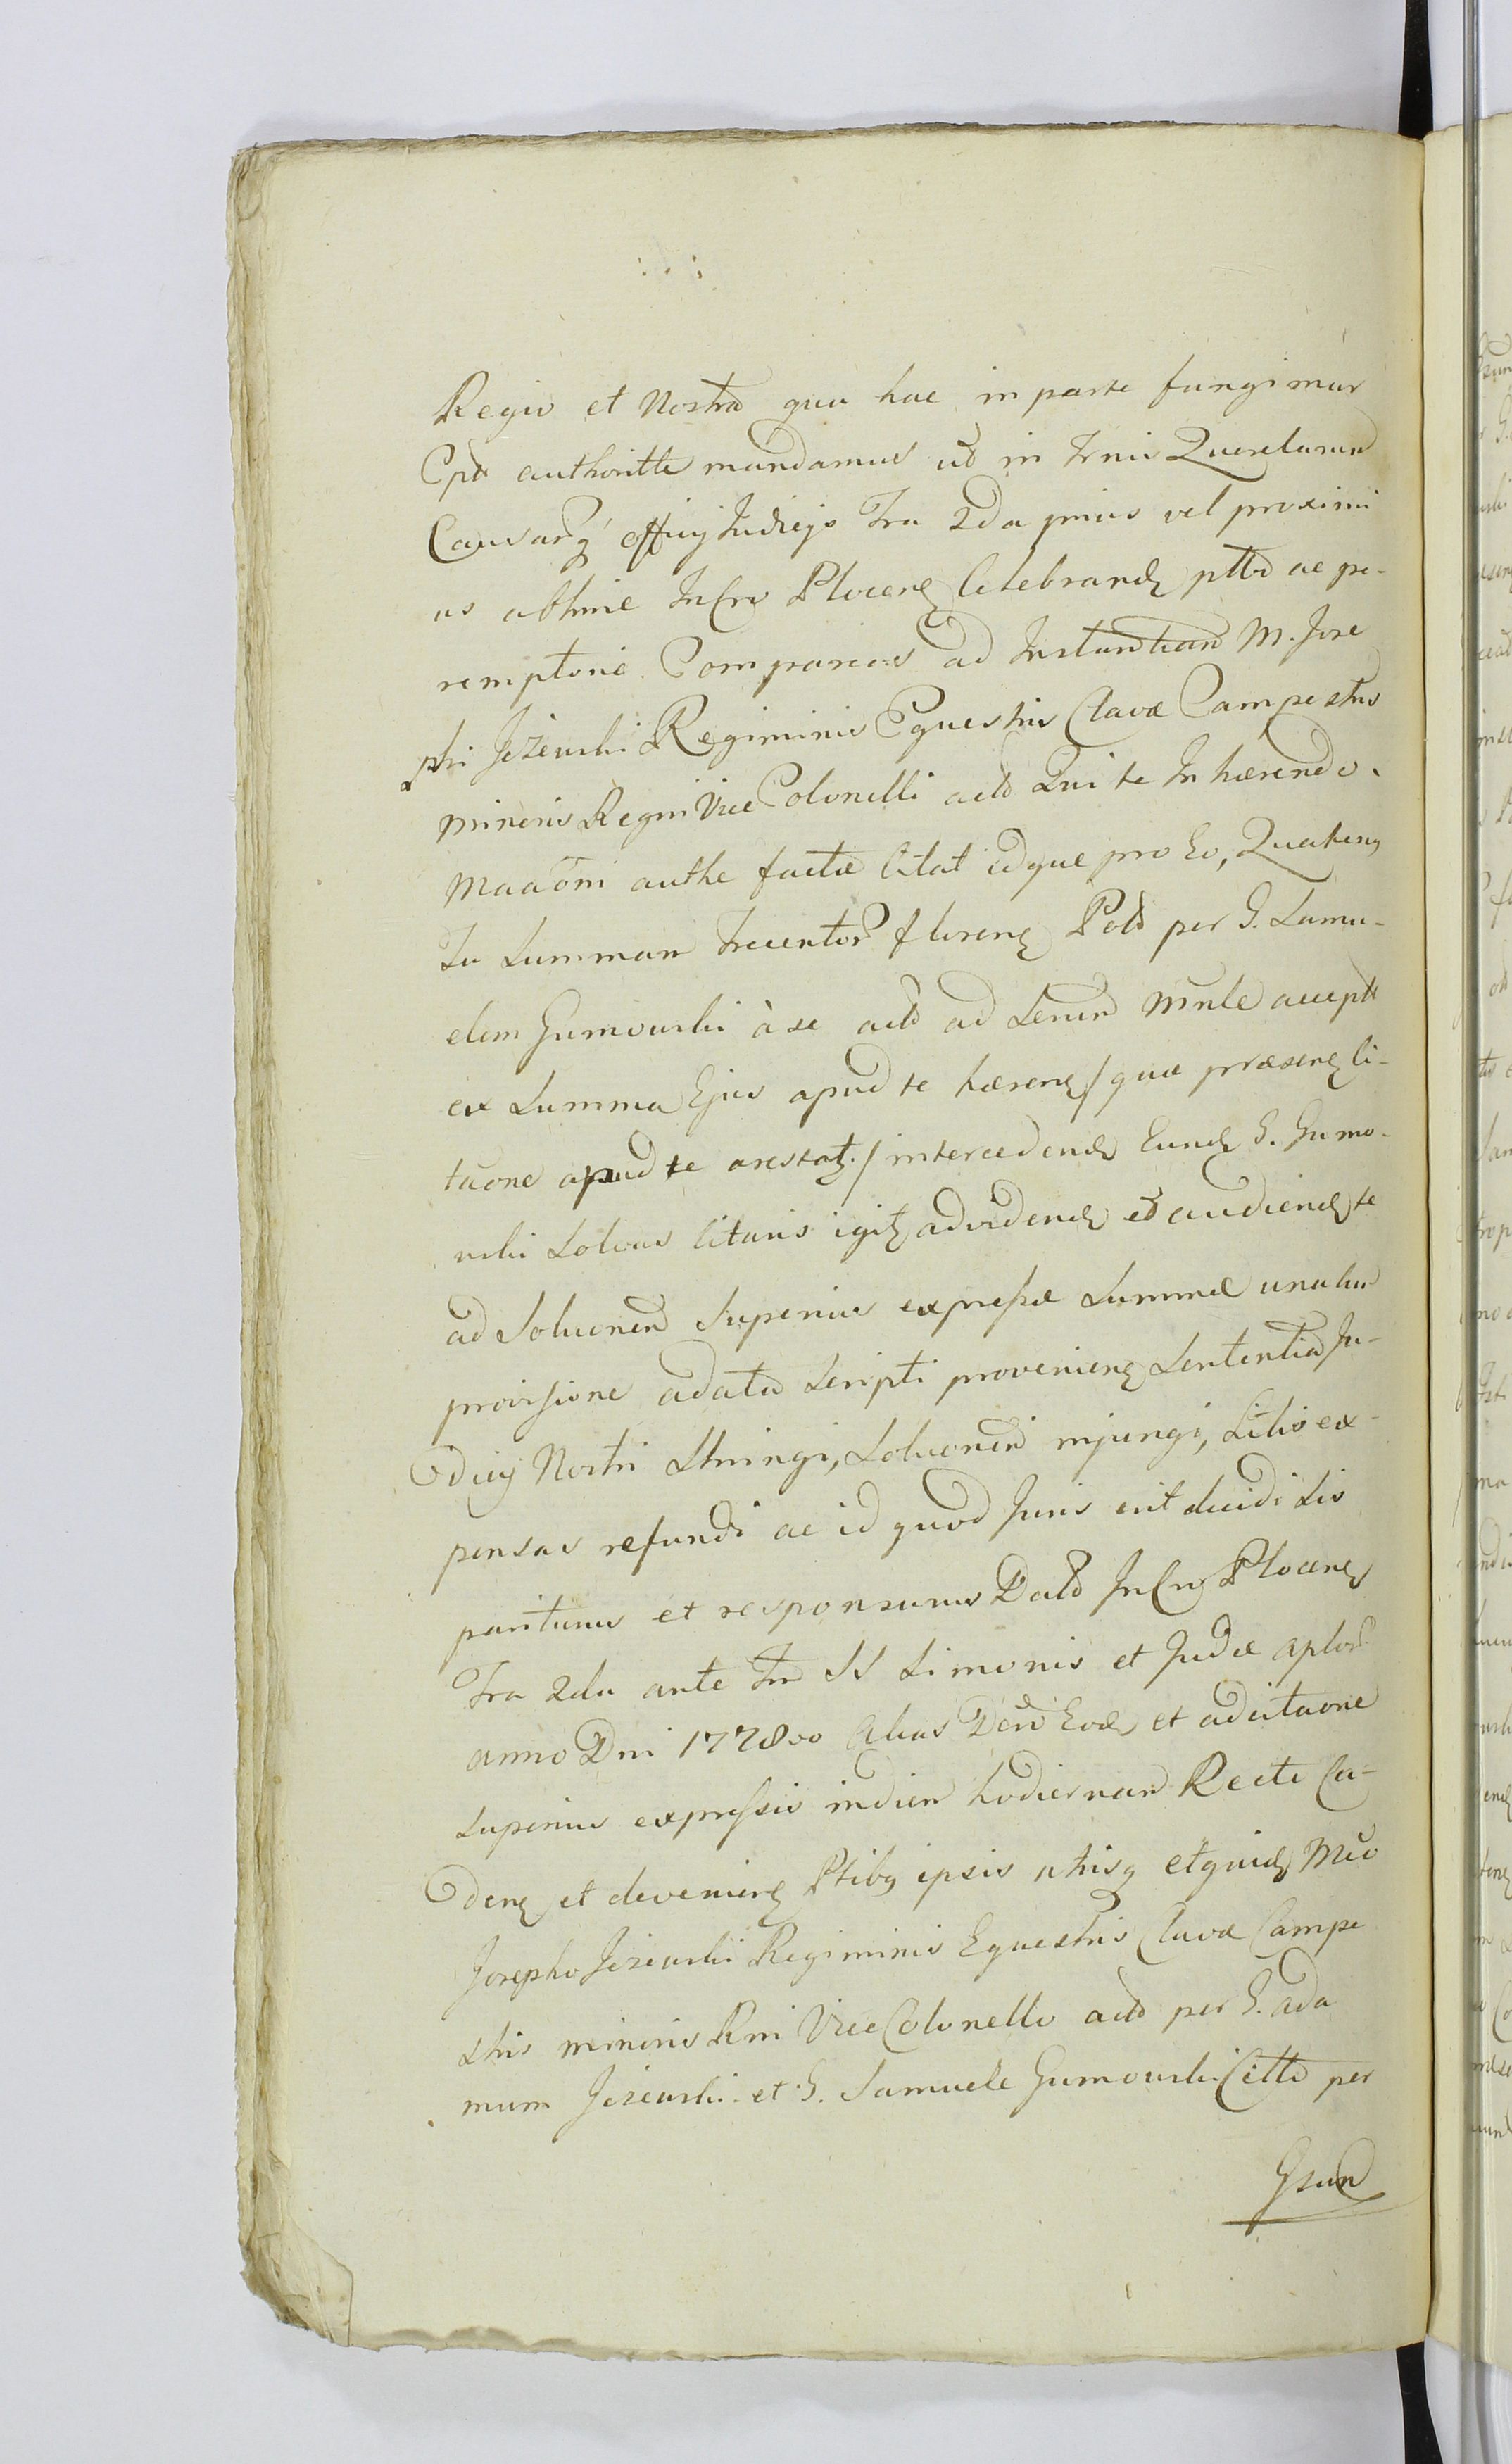 Regia et Nostra qua hac in parte fungimur
Cptr authoritte mandamus ut in Trnis Querelarum
Causarq̃ officij Judicys Fra 2da prius vel proximi
us abhinc In Cro Plocen Celebrand ptto ac pe-
remptorie Compareas ad Instantiam M. Jose
phi Jeżewski Regiminis Equestris Clavæ Campestris
minoris Regni Vice Colonelli actt Qui te In hærendo
Maaōni authe factæ Citat idque pro Eo, Quatenq
Tu Summam Trecentor floren Poll per G. Samu-
elem Gumowski à se actt ad Senm Mnle acceptt
ex Summa Ejus apud te hæren / quæ præsen Ci-
tãone apud te arestat / intercedend Eund G. Gumo-
wski Solvas Citaris igit ad videnđ et audienđ te
ad Soluonem Superius expressæ Summæ una cum
provisione a data Scripti provenien Sententia Ju-
dicij Nostri Stringi, Soluonem injungi, Litis ex-
pensas refundi ac id quod Juris erit decidi Sis
pariturus et responsurus Datt In Cro Plocen
Fra 2da ante Fm SS Simonis et Judæ Aplor
anno Dni 1728vo Alias Den Eod et ad citaone
superius expressis in diem hodiernam Recte Ca-
den et devenien Ptibq ipsis utrisq et quid Mco
Josepho Jeżewski Regiminis Equestris Clavæ Campe
stris minoris Rni Vice Colonello actt per G. Ada
mum Jeżewski et G. Samuele Gumowski Citto per
Gsum